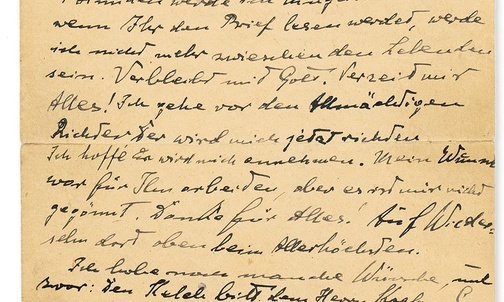 werde ich
wenn Ihr den Brief lesen werdet, werde
ich nicht mehr zwieschen den Lebenden
sein. Verbleibt mit Gott. Verzeiht mir
Alles! Ich gehe vor den Allmächtigen
Richter der wird mich jetzt richten
Ich hoffe Er wird mich annehmen. Mein Wunsch
war für Ihm arbeiten, aber es ist mir nicht
gegönnt. Danke für Alles! Auf Wieder-
sehn dort oben beim Allerhöchsten.
Ich habe noch manche Wünsche, und
zwar: Den Kelch bitt dem Herrn